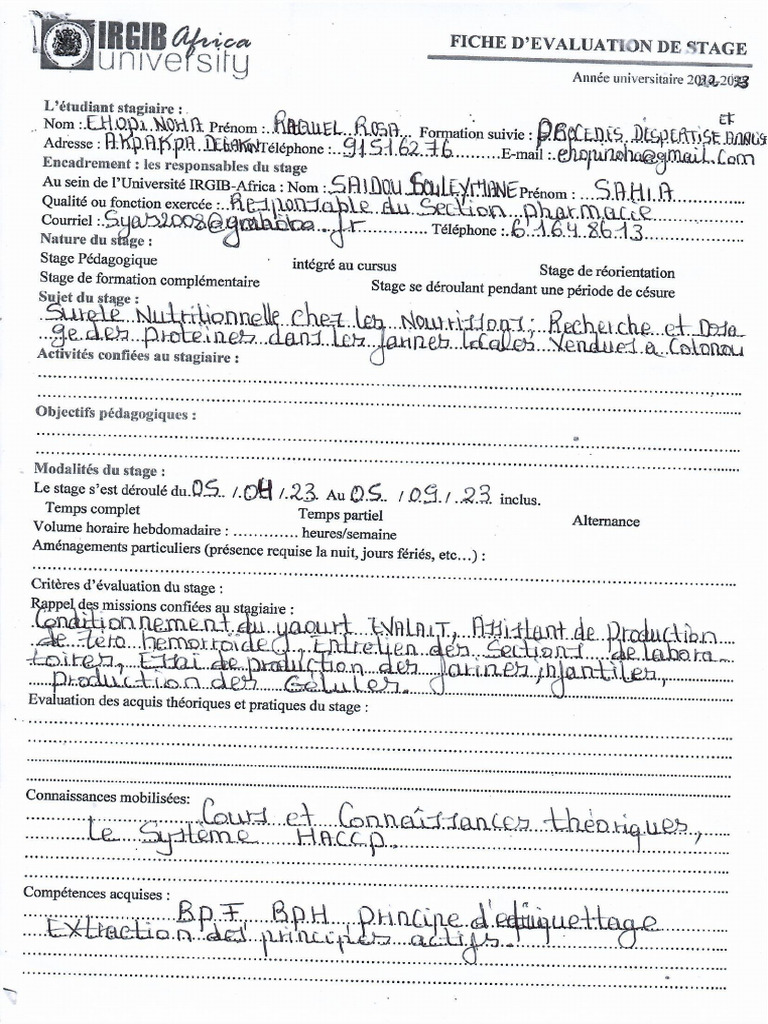 IRGIB Africa
university
FICHE D'EVALUATION DE STAGE
Année universitaire 2022-2023
L'étudiant stagiaire :
Nom : EHOPI NOHA Prénom : RAQUEL ROSA Formation suivie : PROCEDIS DESPERTISE ET ANALYS
Adresse : AKPAKPA DEDAKIN Téléphone : 91516276 E-mail : ehopinoha@gmail.com
Encadrement : les responsables du stage
Au sein de l'Université IRGIB-Africa : Nom : SAIDOU SOULEYMANE Prénom : SAHIA
Qualité ou fonction exercée : Responsable du Section pharmacie
Courriel : .fr Téléphone : 61648613
Nature du stage :
Stage Pédagogique intégré au cursus Stage de réorientation
Stage de formation complémentaire Stage se déroulant pendant une période de césure
Sujet du stage :
Sureté Nutritionnelle chez les Nourrissons; Recherche et Dosa
ge des Proteines dans les farines locales vendues à Cotonou
Activités confiées au stagiaire :
Objectifs pédagogiques :
Modalités du stage :
Le stage s'est déroulé du 05 / 04 / 23 Au 05 / 09 / 23 inclus.
Temps complet Temps partiel Alternance
Volume horaire hebdomadaire : ............. heures/semaine
Aménagements particuliers (présence requise la nuit, jours fériés, etc…) :
Critères d'évaluation du stage :
Rappel des missions confiées au stagiaire :
Conditionnement du yaourt IVALAIT, Assistant de Production
de Zéro hemorroïde, Entretien des Sections de labora
toires, Essai de production des farines infantiles,
production des Gélules.
Evaluation des acquis théoriques et pratiques du stage :
Connaissances mobilisées:
Cours et Connaissances théoriques,
Le Système HACCP.
Compétences acquises :
BPF BPH principe d'etiquettage
Extraction des principes actifs.